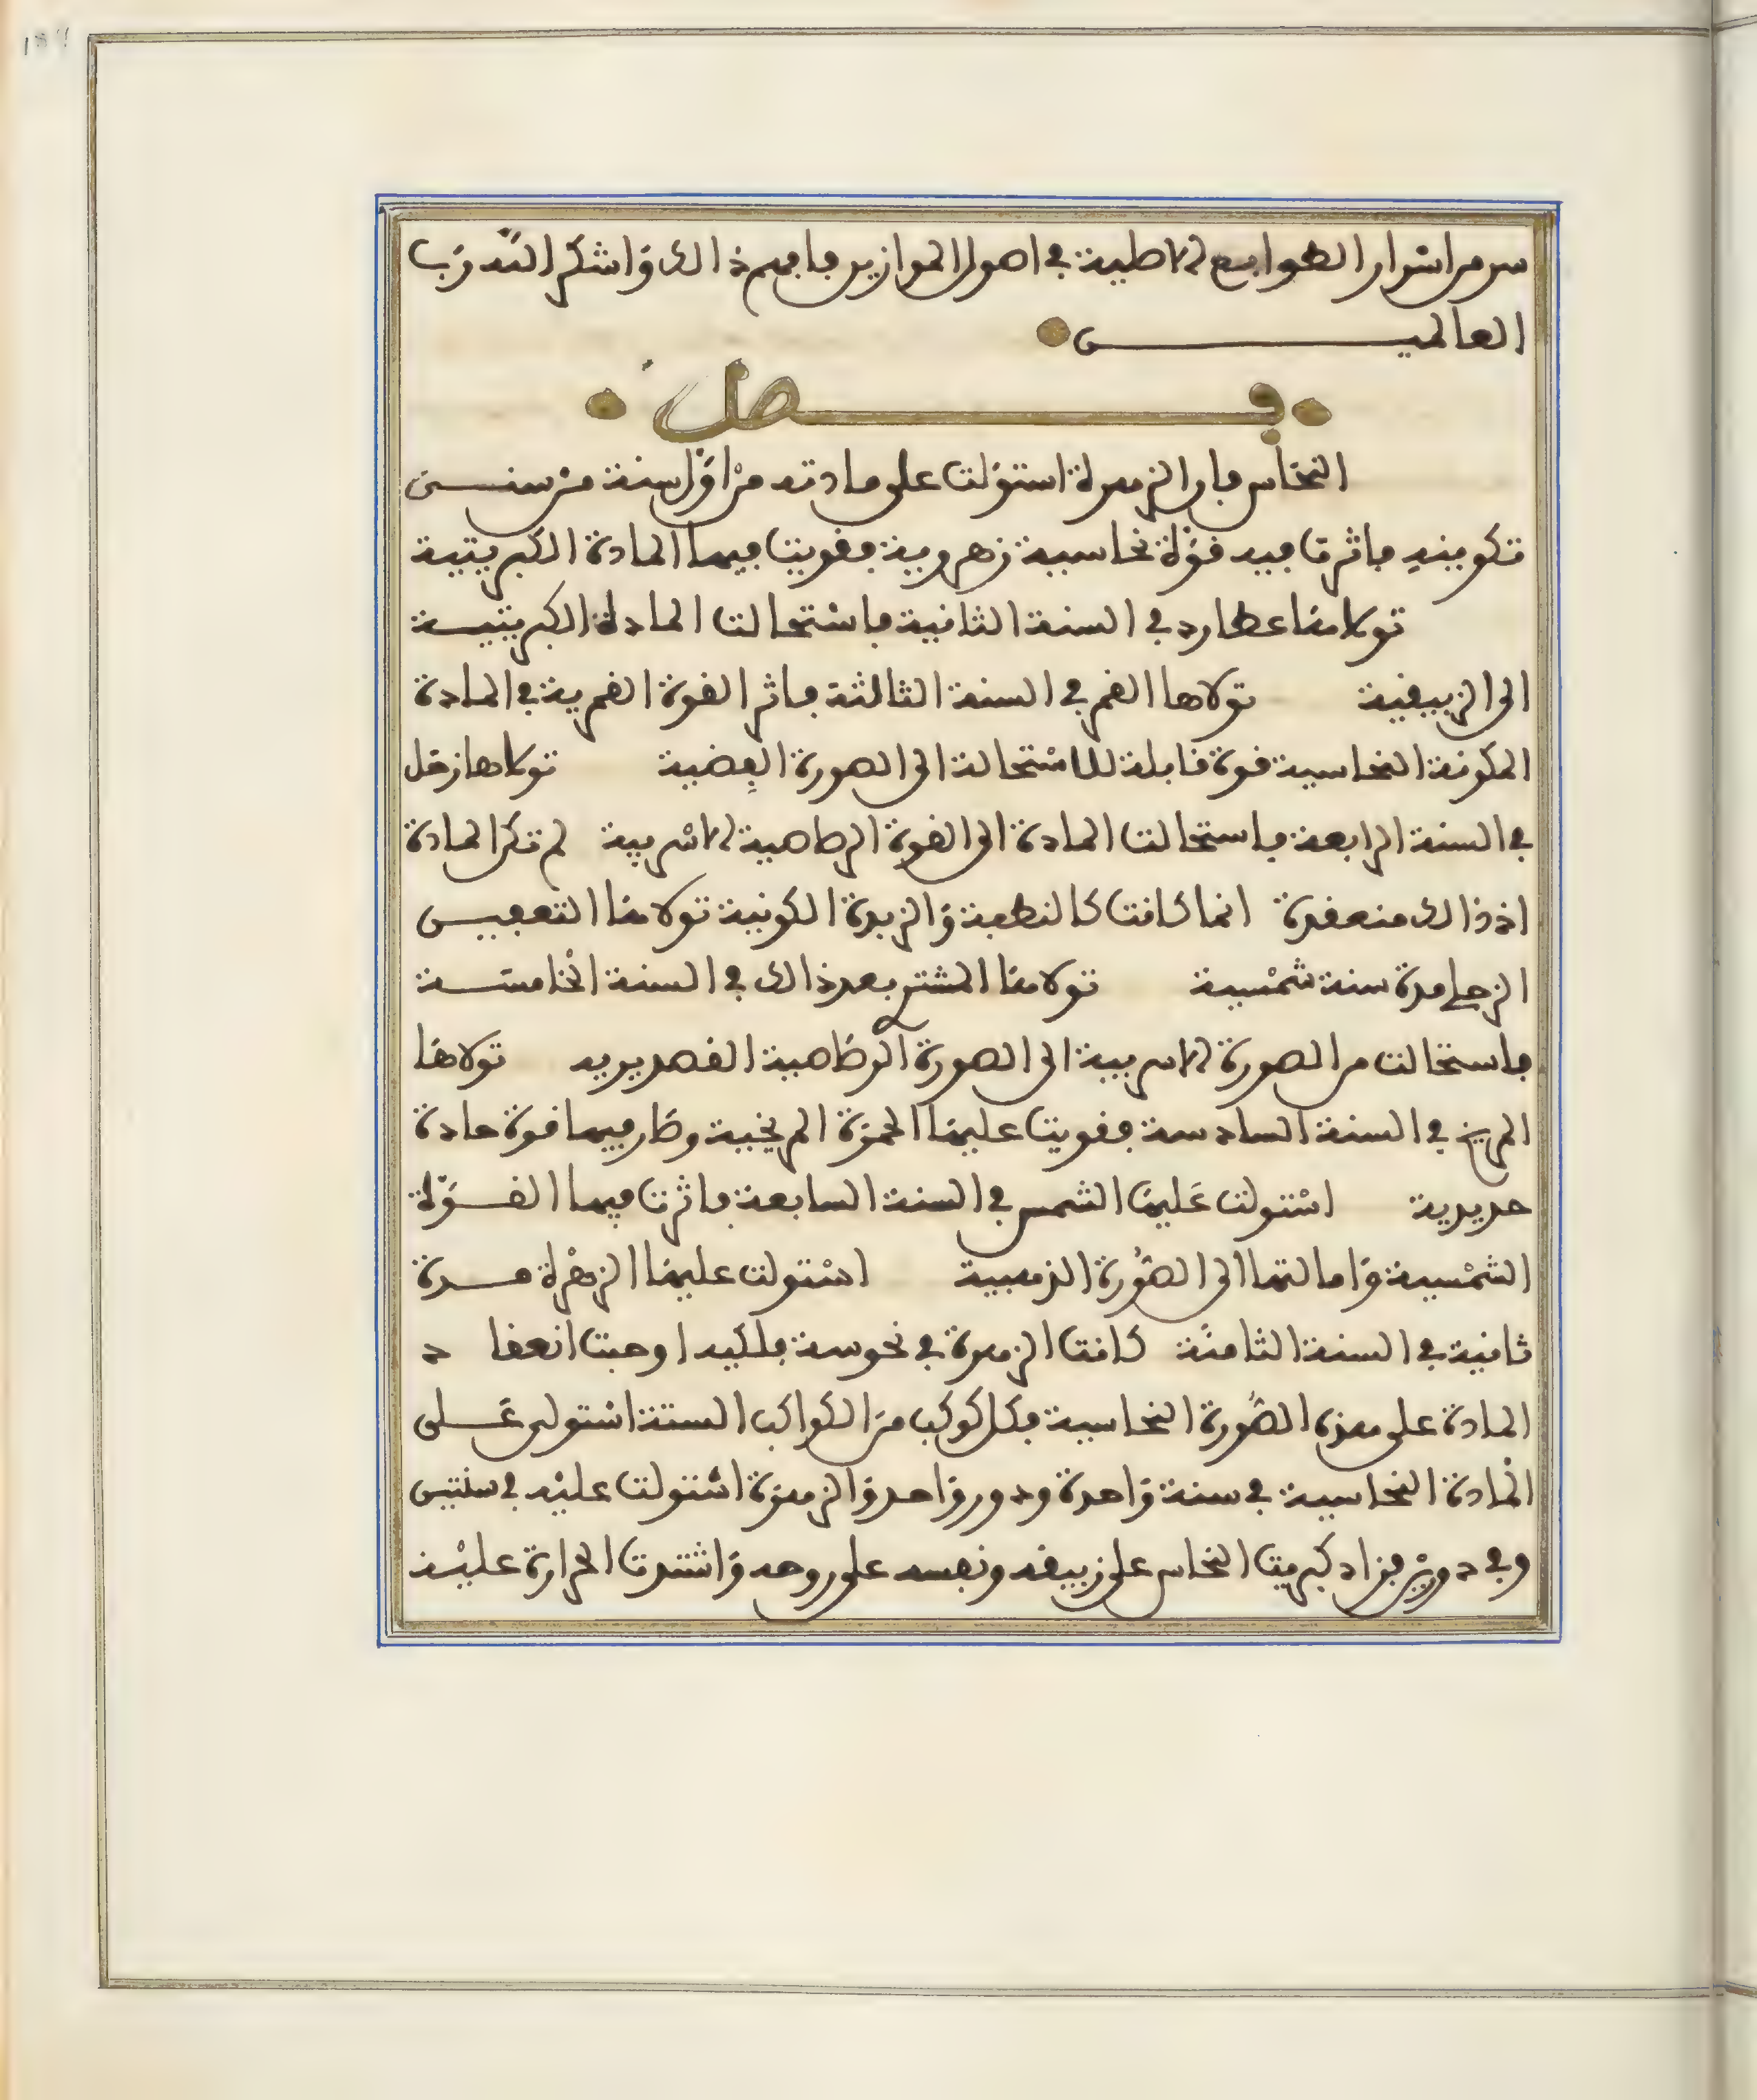 سر من اسرار الطوابع الاصلية في اصول الموازين فافهم ذالك واشكر الله رب
العالميـــن
فـــصل
النحاس فان الزهرة استولت على مادته من اول سنة من سنـــي
تكوينه فاثرت فيه قوة نحاسية زهروية فقويت فيها المادة الكبريتية
تولاها عطارد في السنة الثانية فاستحالت المادة الكبريتيـــة
الى الزيبقية تولاها القمر في السنة الثالثة فاثر القوة القمرية في المادة
المكونة النحاسية قوة قابلة للاستحالة الى الصورة الفضية تولاها زحل
في السنة الرابعة فاستحالت المادة الى القوة الرصاصية الاسربية لم تكن المادة
اذ ذالك منعقدة انما كانت كالنطفة والزبدة الكونية تولاها التعفيـــن
الزحلي مدة سنة شمسية تولاها المشتري بعد ذالك في السنة الخامســـة
فاستحالت من الصورة الاسربية الى الصورة الرصاصية القصديرية تولاها
المريخ في السنة السادسة فقويت عليها الحمرة المريخية وصار فيها قوة حادة
حديدية استولت عليها الشمس في السنة السابعة فاثرت فيها القـــوة
الشمسية وامالتها الى الصورة الذهبية استولت عليها الزهرة مـــدة
ثانية في السنة الثامنة كانت الزهرة في نحوسة فلكية اوجبت انعقا د
المادة على هذه الصورة النحاسية فكل كوكب من الكواكب الستة استولى عـــلى
المادة النحاسية في سنة واحدة ودور واحد والزهرة استولت عليه في سنتين
وفي دورين فزاد كبريت النحاس على زيبقه ونفسه على روحه واشتدت الحرارة عليه